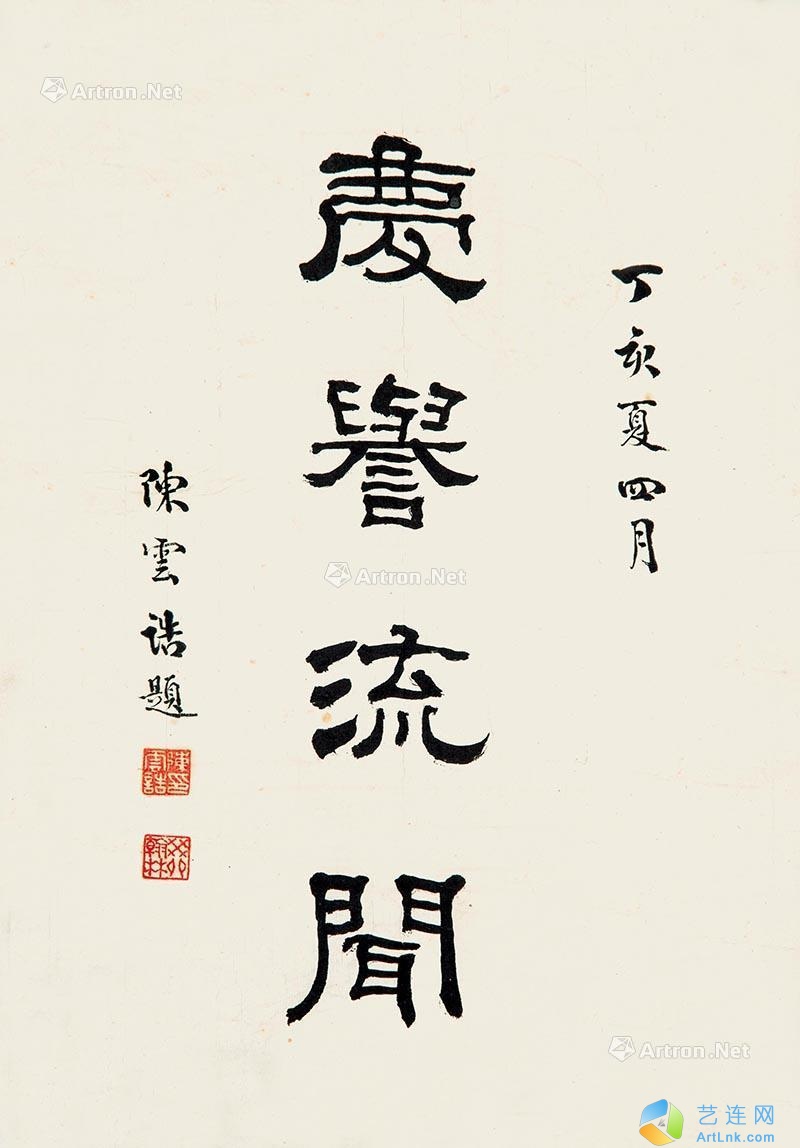 丁亥夏四月
慶譽流聞
陳雲誥題
陳雲誥印
癸卯翰林
Artron.Net
Artron.Net
Artron.Net
艺连网
ArtLnk.com